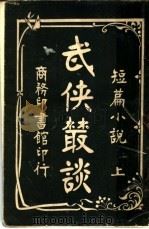 短篇小說 上
武俠叢談
商務印書館印行